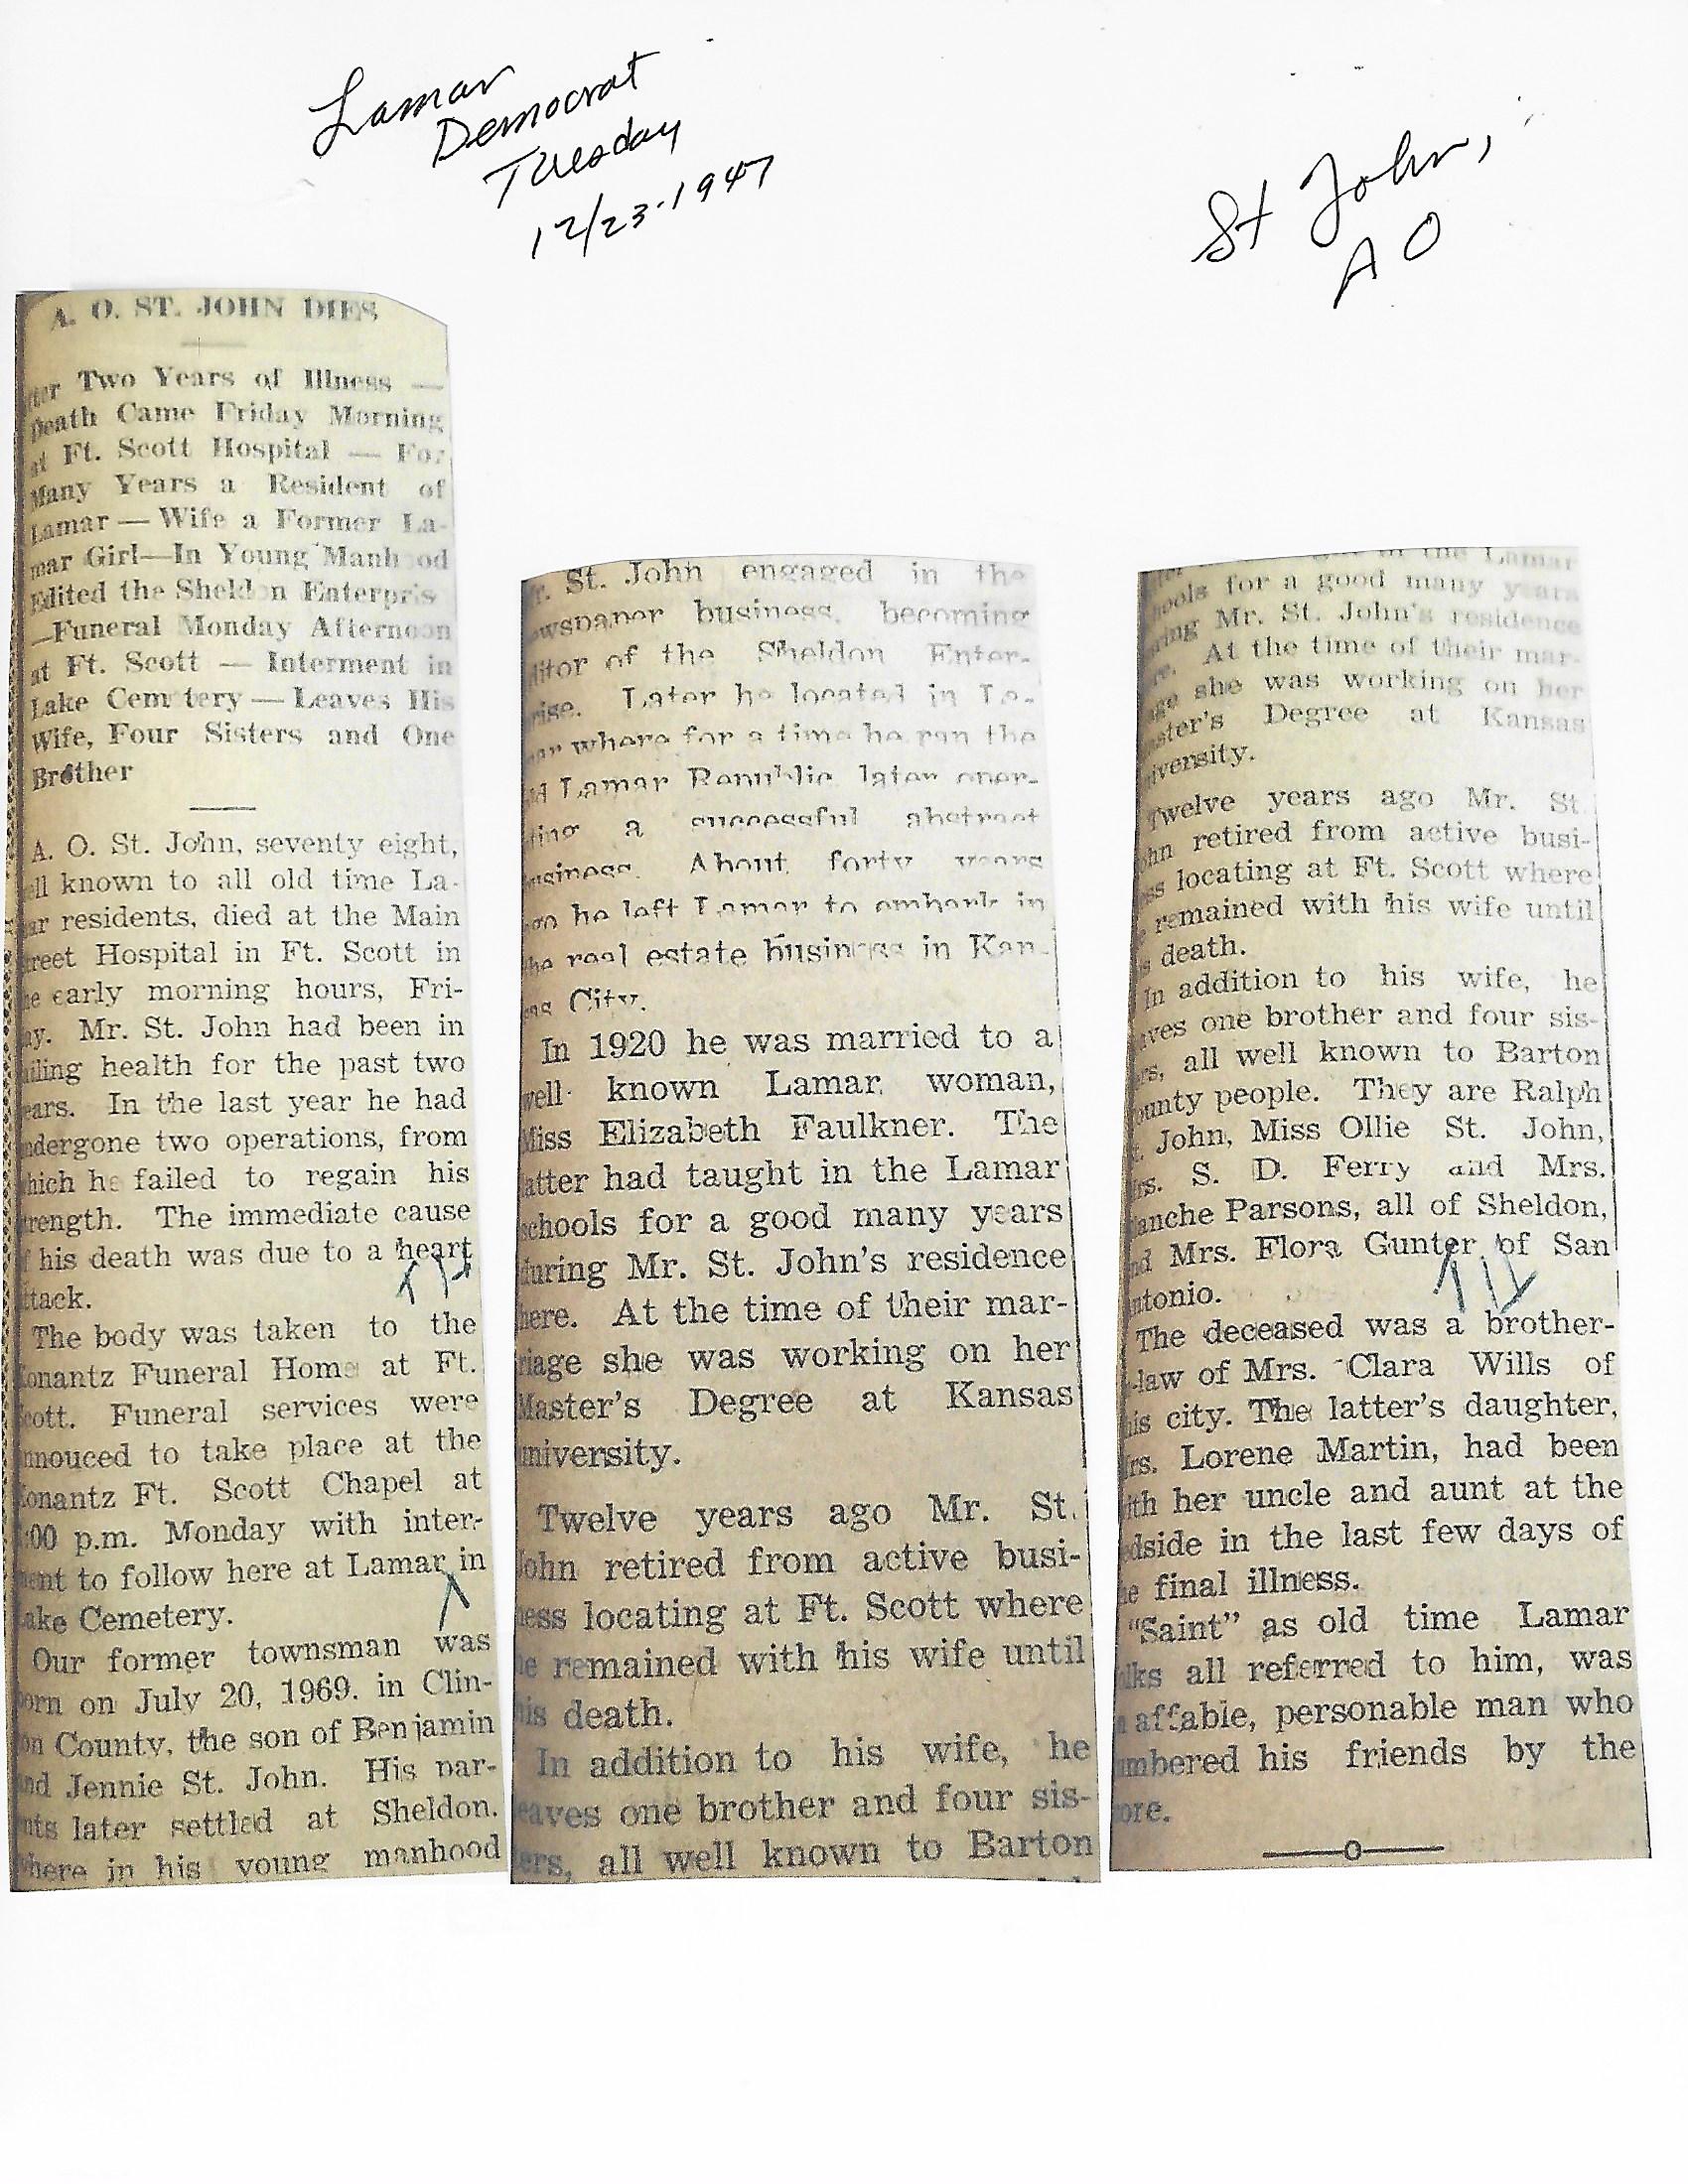 Lamar
Democrat
Tuesday
12/23-1947
St John,
A O
A. O. ST. JOHN DIES
ter Two Years of Illness —
Death Came Friday Morning
at Ft. Scott Hospital — For
Many Years a Resident of
Lamar — Wife a Former La-
mar Girl—In Young Manhood
Edited the Sheldon Enterpris
—Funeral Monday Afternoon
at Ft. Scott — Interment in
Lake Cemetery — Leaves His
Wife, Four Sisters and One
Brother
A. O. St. John, seventy eight,
ell known to all old time La-
ar residents, died at the Main
treet Hospital in Ft. Scott in
he early morning hours, Fri-
ay. Mr. St. John had been in
ailing health for the past two
ears. In the last year he had
ndergone two operations, from
hich he failed to regain his
trength. The immediate cause
f his death was due to a heart
ttack.
The body was taken to the
onantz Funeral Home at Ft.
cott. Funeral services were
nnouced to take place at the
onantz Ft. Scott Chapel at
:00 p.m. Monday with inter-
ment to follow here at Lamar in
ake Cemetery.
Our former townsman was
orn on July 20, 1969. in Clin-
on County, the son of Benjamin
nd Jennie St. John. His par-
nts later settled at Sheldon.
here in his young manhood
r. St. John engaged in the
ewspaper business, becoming
ditor of the Sheldon Enter-
rise. Later he located in La-
ar where for a time he ran the
ld Lamar Republic later oper-
ting a successful abstract
usiness. About forty years
go he left Lamar to embark in
he real estate business in Kan-
as City.
In 1920 he was married to a
well known Lamar woman,
Miss Elizabeth Faulkner. The
latter had taught in the Lamar
schools for a good many years
during Mr. St. John's residence
here. At the time of their mar-
riage she was working on her
Master's Degree at Kansas
university.
Twelve years ago Mr. St.
John retired from active busi-
ness locating at Ft. Scott where
he remained with his wife until
his death.
In addition to his wife, he
leaves one brother and four sis-
ters, all well known to Barton
in the Lamar
hools for a good many years
uring Mr. St. John's residence
re. At the time of their mar-
age she was working on her
aster's Degree at Kansas
niversity.
Twelve years ago Mr. St.
ohn retired from active busi-
ess locating at Ft. Scott where
remained with his wife until
s death.
In addition to his wife, he
aves one brother and four sis-
rs, all well known to Barton
ounty people. They are Ralph
t. John, Miss Ollie St. John,
rs. S. D. Ferry and Mrs.
lanche Parsons, all of Sheldon,
nd Mrs. Flora Gunter of San
ntonio.
The deceased was a brother-
-law of Mrs. Clara Wills of
his city. The latter's daughter,
rs. Lorene Martin, had been
ith her uncle and aunt at the
edside in the last few days of
he final illness.
"Saint" as old time Lamar
olks all referred to him, was
n affable, personable man who
umbered his friends by the
core.